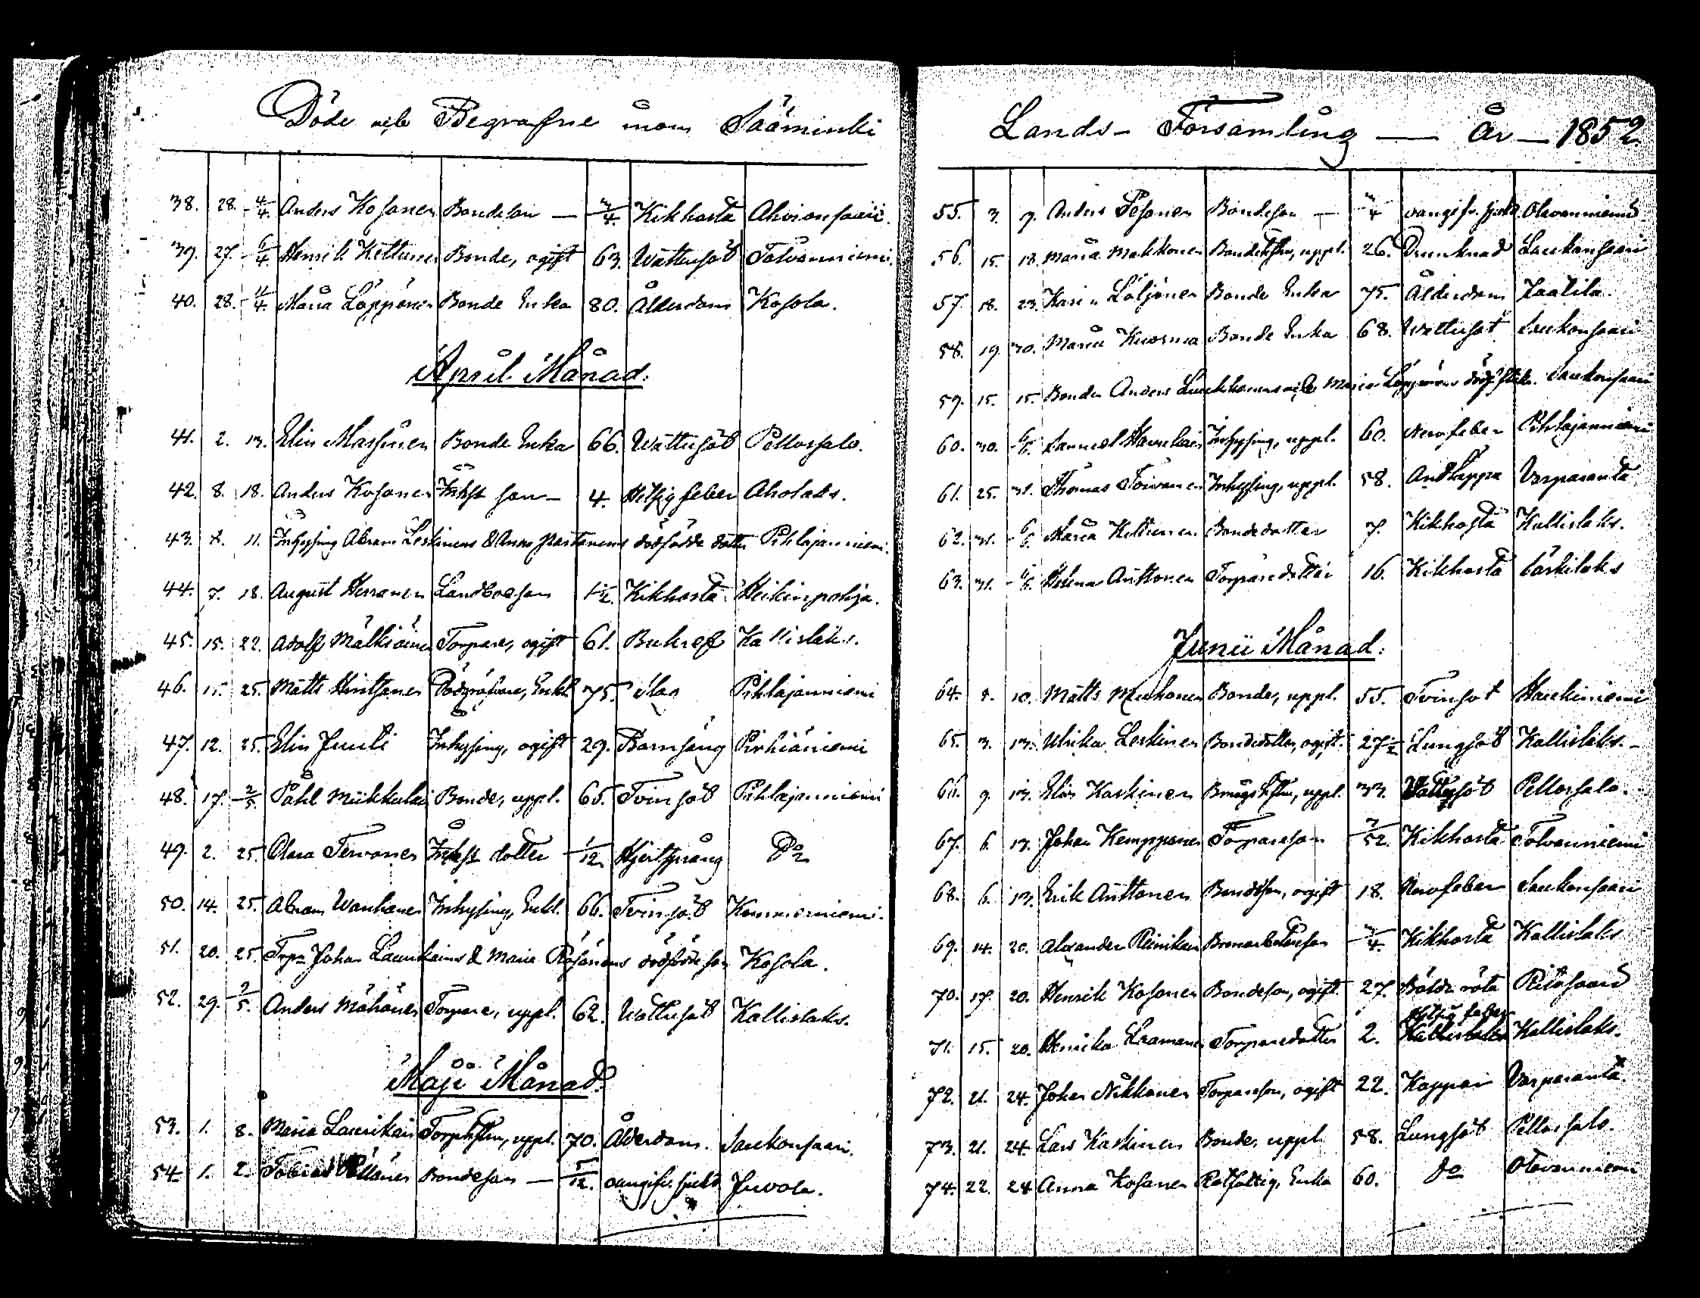 Döde och Begrafne inom Sääminki
38. 28. 4/4. Anders Kosonen Bondeson — 3/4 Kikhosta Ahvionsaari.
39. 27. 6/4. Henrik Kettunen Bonde, ogift 63. Wattusot Tolvanniemi.
40. 28. 11/4. Maria Löppönen Bonde Enka 80. Ålderdom Kosola.
April Månad.
41. 2. 13. Elin Massinen Bonde Enka 66. Wattusot Pellossalo.
42. 8. 18. Anders Kosonen Inhys son — 4. Hitsig feber Aholaks.
43. 8. 11. Inhysing Abram Leskinens & Anna dödfödde dotter Pihlajanniemi.
44. 7. 18. August Herranen Landboeson 1 1/2 Kikhosta Heikinpohja.
45. 15. 22. Adolf Mälkiäinen Torpare, ogift 61. Bukref Kallislaks.
46. 15. 25. Matts Hintsanen Enkl. 75. Slag Pihlajanniemi
47. 12. 25. Elin Juuti Inhysing, ogift 29. Barnsäng Pirhiäniemi
48. 17. 2/5. Påhl Miikkulai Bonde, uppl. 65. Tvinsot Pihlajanniemi
49. 2. 25. Clara Tervonen Inhys dotter 1/12 Hjertsprång Do
50. 14. 25. Abram Wanhanen Inhysing, Enkl. 66. Tvinsot Kommerniemi.
51. 20. 25. Torp. Johan Laurikains & Maria Räsänens dödfödde son Kosola.
52. 29. 2/5. Anders Mähönen Torpare, uppl. 62. Wattusot Kallislaks.
Maji Månad.
53. 1. 8. Maria Laurikain uppl. 70. Ålderdom. Saukonsaari.
54. 1. 2. Tobias Bondeson — /12. oangifv. sjukd. Juvola.
Lands- Församling — År — 1852.
55. 3. 9. Anders Pesonen Bondeson — 3/4 oangifv. sjukd. Otavanniemi
56. 15. 18. Maria Makkonen uppl. 26. Drunknad Saukonsaari
57. 18. 23. Karin Löljönen Bonde Enka 75. Ålderdom Kaatila.
58. 19. 30. Maria Kuosma Bonde Enka 68. Wattusot Saukonsaari
59. 15. 15. Bonden Anders Laukkanens och Maria Löppönens dödf. flicka. Saukonsaari
60. 30. 6/6. Samuel Haukkai Inhysing, uppl. 60. Nervfeber Pihlajanniemi
61. 25. 31. Thomas Toivanen Inhysing, uppl. 58. Andtäppa Varparanta
62. 31. 6/6. Maria Kettunen Bondedotter 7. Kikhosta Kallislaks.
63. 31. 6/6. Helena Auttonen Torparedotter 16. Kikhosta
Junii Månad.
64. 8. 10. Matts Muhonen Bonde, uppl. 55. Tvinsot Haukiniemi
65. 3. 13. Ulrika Leskinen Bondedotter, ogift. 27 1/2 Lungsot Kallislaks.
66. 9. 13. Elin Kaskinen uppl. 33. Wattusot Pellossalo.
67. 6. 13. Johan Kemppanen Torpareson 2/52. Kikhosta Tolvanniemi
68. 6. 13. Erik Auttonen Bondeson, ogift 18. Nervfeber Saukonsaari
69. 14. 20. Alexander Reinikai 3/4 Kikhosta Kallislaks
70. 17. 20. Henrik Kosonen Bondeson, ogift 27. Bölde röta Pitosaari
71. 15. 20. Henrika Laamanen Torparedotter 2. Hitsig feber Kallislaks.
72. 21. 24. Johan Nikkonen Torpareson, ogift 22. Koppor Varparanta.
73. 21. 24. Lars Kaskinen Bonde, uppl. 58. Lungsot Pellossalo.
74. 22. 24. Anna Kosonen Rotfattig, Enka 60. Do Otavanniemi